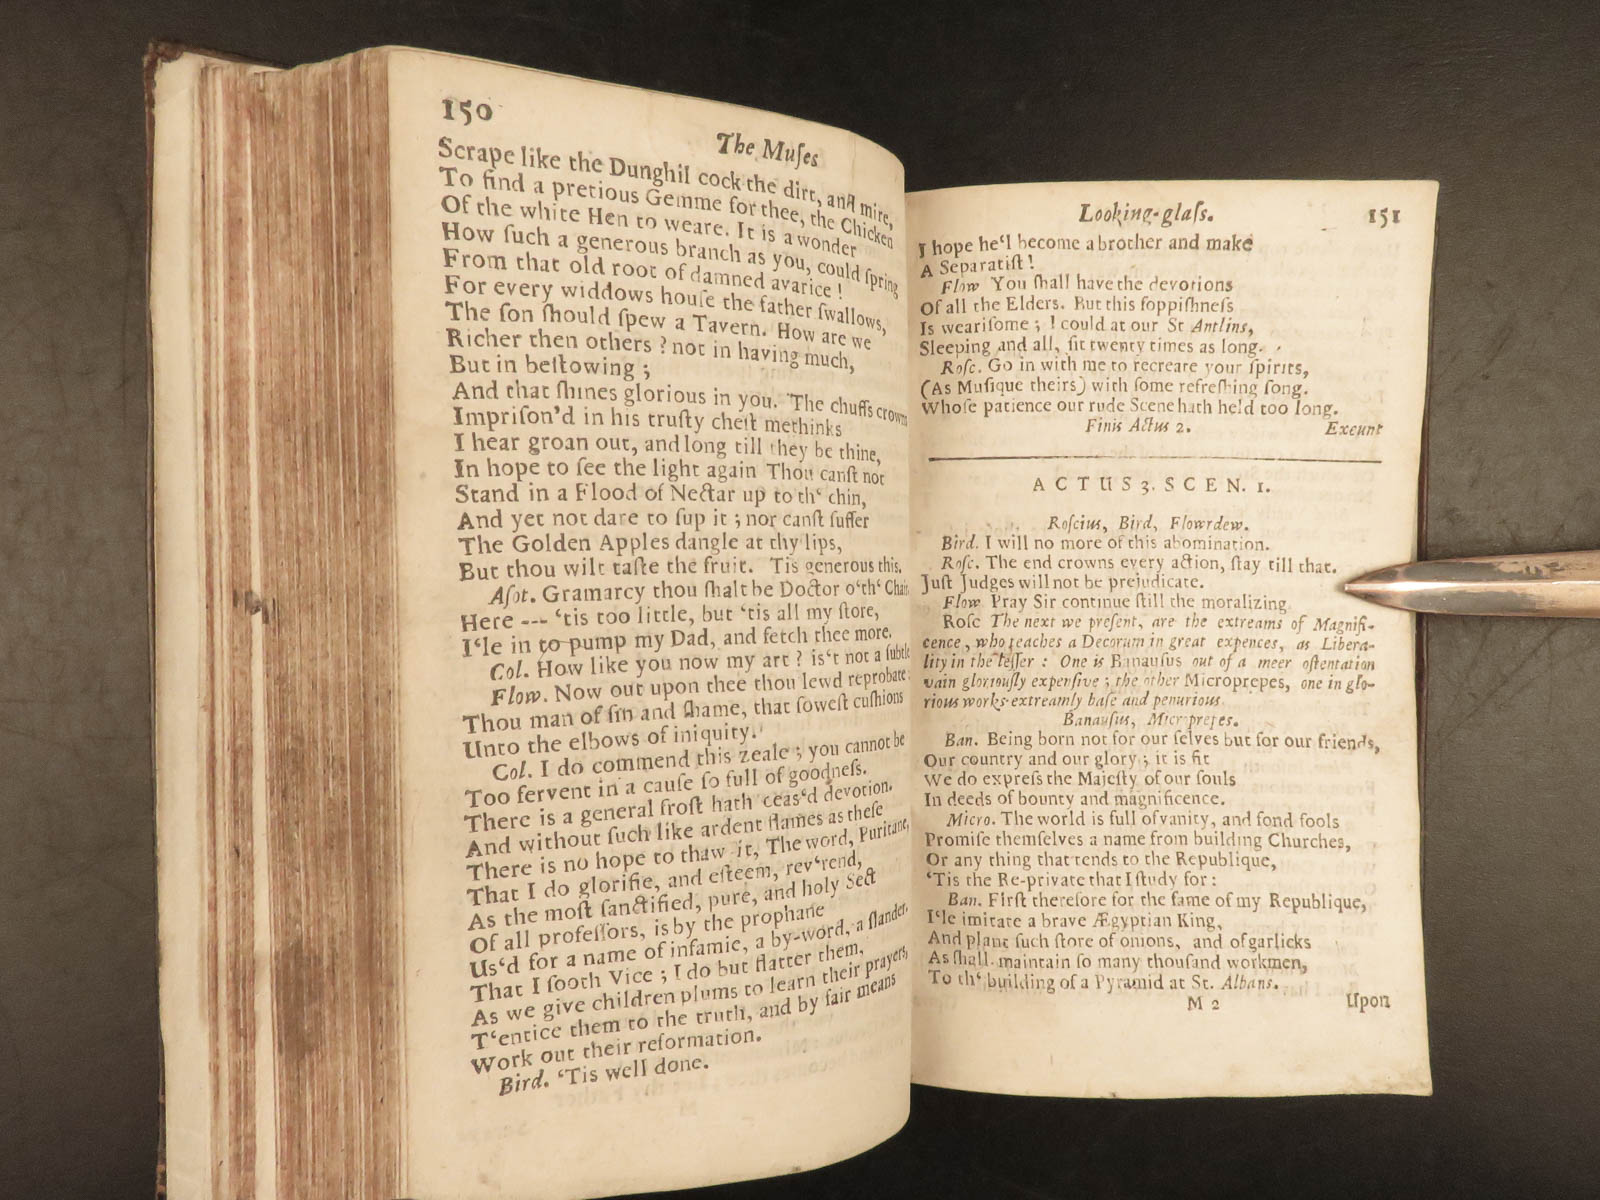 150
The Muſes
Scrape like the Dunghil cock the dirt, and mire,
To find a pretious Gemme for thee, the Chicken
Of the white Hen to weare. It is a wonder
How ſuch a generous branch as you, could ſpring
From that old root of damned avarice !
For every widdows houſe the father ſwallows,
The ſon ſhould ſpew a Tavern. How are we
Richer then others ? not in having much,
But in beſtowing ;
And that ſhines glorious in you. The chuffs crowns
Impriſon'd in his truſty cheſt methinks
I hear groan out, and long till they be thine,
In hope to ſee the light again Thou canſt not
Stand in a Flood of Nectar up to th‘ chin,
And yet not dare to ſup it ; nor canſt ſuffer
The Golden Apples dangle at thy lips,
But thou wilt taſte the fruit. Tis generous this.
Aſot. Gramarcy thou ſhalt be Doctor o'th‘ Chair
Here --- ‘tis too little, but ‘tis all my ſtore,
I‘le in to pump my Dad, and fetch thee more.
Col. How like you now my art ? is‘t not a ſubtle
Flow. Now out upon thee thou lewd reprobate
Thou man of ſin and ſhame, that ſoweſt cuſhions
Unto the elbows of iniquity.
Col. I do commend this zeale ; you cannot be
Too fervent in a cauſe ſo full of goodneſs.
There is a general froſt hath ceas‘d devotion.
And without ſuch like ardent flames as theſe
There is no hope to thaw it, The word, Puritane,
That I do glorifie, and eſteem, rev‘rend,
As the moſt ſanctified, pure, and holy Sect
Of all profeſſors, is by the prophane
Us‘d for a name of infamie, a by-word, a ſlander.
That I ſooth Vice ; I do but flatter them,
As we give children plums to learn their prayers,
T‘entice them to the truth, and by fair means
Work out their reformation.
Bird. ‘Tis well done.
Looking-glaſs.
151
I hope he‘l become a brother and make
A Separatiſt !
Flow You ſhall have the devotions
Of all the Elders. But this foppiſhneſs
Is weariſome ; I could at our St Antlins,
Sleeping and all, ſit twenty times as long.
Roſc. Go in with me to recreate your ſpirits,
(As Muſique theirs) with ſome refreſhing ſong.
Whoſe patience our rude Scene hath held too long.
Finis Actus 2. Exeunt
ACTUS 3. SCEN. 1.
Roſcius, Bird, Flowrdew.
Bird. I will no more of this abomination.
Roſc. The end crowns every action, ſtay till that.
Juſt Judges will not be prejudicate.
Flow Pray Sir continue ſtill the moralizing
Roſc The next we preſent, are the extreams of Magnifi-
cence, who teaches a Decorum in great expences, as Libera-
lity in the leſſer : One is Banauſus out of a meer oſtentation
vain gloriouſly expenſive ; the other Microprepes, one in glo-
rious works extreamly baſe and penurious.
Banauſus, Microprepes.
Ban. Being born not for our ſelves but for our friends,
Our country and our glory ; it is fit
We do expreſs the Majeſty of our ſouls
In deeds of bounty and magnificence.
Micro. The world is full of vanity, and fond fools
Promiſe themſelves a name from building Churches,
Or any thing that tends to the Republique,
‘Tis the Re-private that I ſtudy for :
Ban. Firſt therefore for the fame of my Republique,
I‘le imitate a brave Ægyptian King,
And plant ſuch ſtore of onions, and of garlicks
As ſhall maintain ſo many thouſand workmen,
To th‘ building of a Pyramid at St. Albans.
M 2
Upon